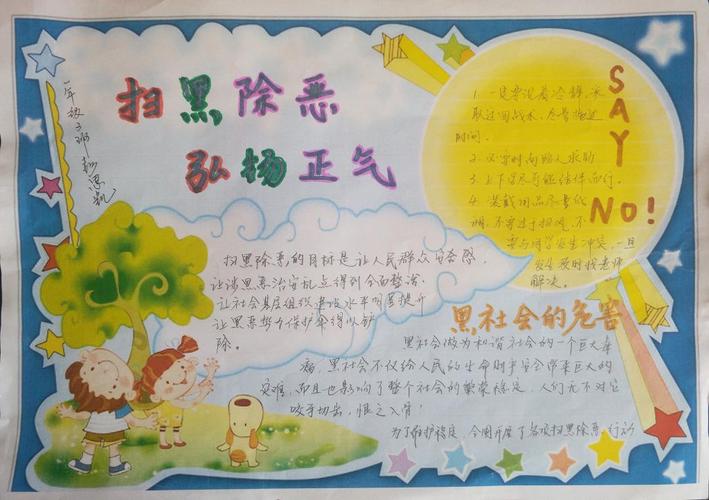 扫黑除恶
弘扬正气
一年级3班
SAY
NO!
1. 一定要沉着冷静,采
取迂回战术,尽量拖延
时间.
2. 必要时向路人求助
3. 上下学尽可能结伴而行.
4. 装戴用品尽量低
调,不要过于招观,不
要与同学发生冲突,一旦
发生及时找老师
解决.
扫黑除恶的目标是让人民群众安全感,
让涉黑恶治安乱点得到全面整治.
让社会基层组织建设水平明显提升
让黑恶势力保护伞得以铲
除.
黑社会的危害
黑社会做为和谐社会的一个巨大毒
瘤,黑社会不仅给人民的生命财产安全带来巨大的
灾难,而且也影响了整个社会的繁荣稳定,人们无不对它
咬牙切齿,恨之入骨
为了维护稳定,全国开展了各项扫黑除恶行动